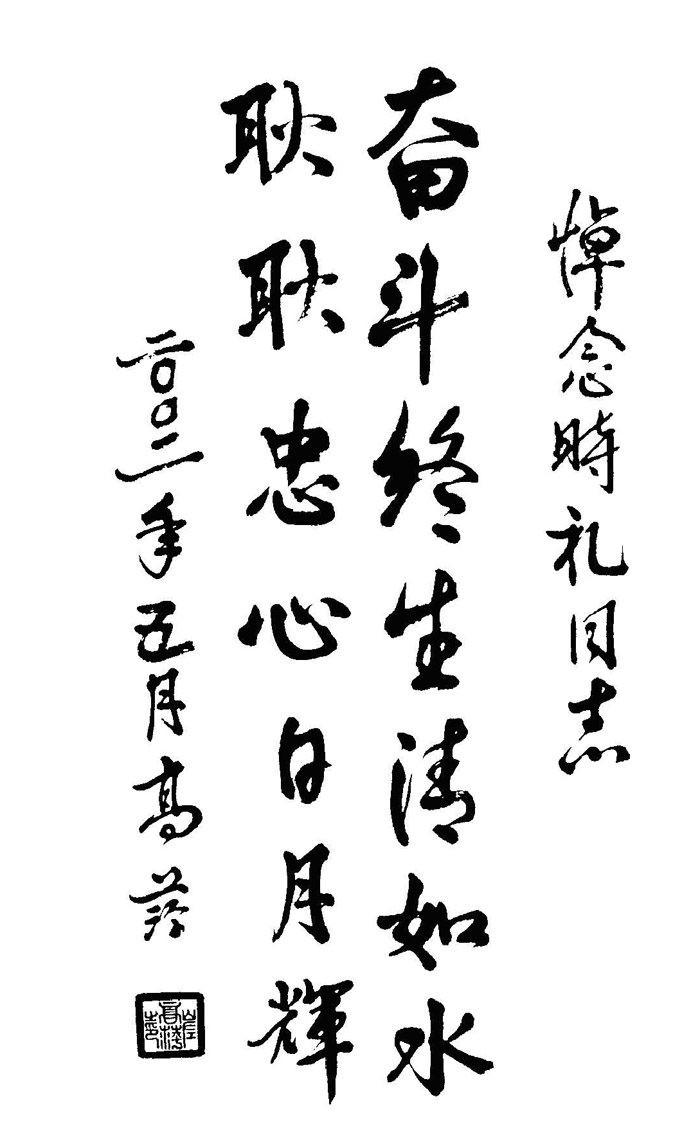 悼念時礼同志
奋斗终生清如水
耿耿忠心日月輝
二００二年五月高